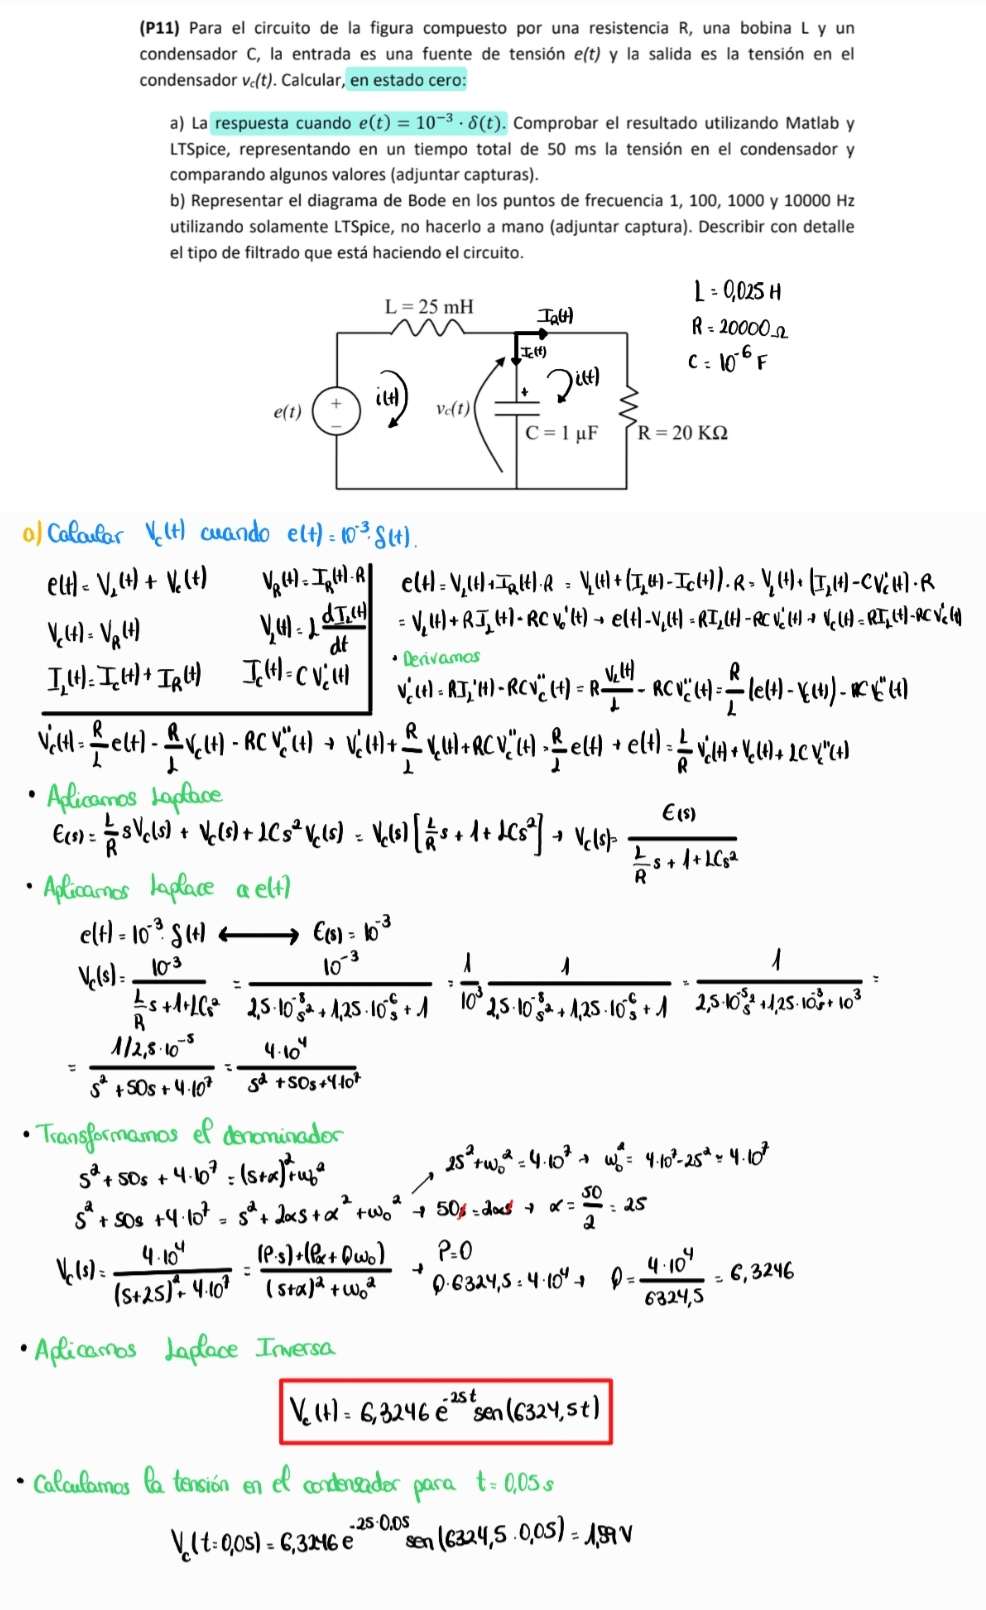 (P11) Para el circuito de la figura compuesto por una resistencia R, una bobina L y un
condensador C, la entrada es una fuente de tensión e(t) y la salida es la tensión en el
condensador vc(t). Calcular, en estado cero:
a) La respuesta cuando e(t) = 10⁻³ · δ(t). Comprobar el resultado utilizando Matlab y
LTSpice, representando en un tiempo total de 50 ms la tensión en el condensador y
comparando algunos valores (adjuntar capturas).
b) Representar el diagrama de Bode en los puntos de frecuencia 1, 100, 1000 y 10000 Hz
utilizando solamente LTSpice, no hacerlo a mano (adjuntar captura). Describir con detalle
el tipo de filtrado que está haciendo el circuito.
L = 0,025 H
R = 20000 Ω
C = 10⁻⁶ F
L = 25 mH
IR(t)
Ic(t)
i(t)
i(t)
e(t)
+
−
vc(t)
+
C = 1 µF
R = 20 KΩ
a) Calcular Vc(t) cuando e(t) = 10⁻³·δ(t).
e(t) = VL(t) + Vc(t)
VR(t) = IR(t)·R
e(t) = VL(t) + IR(t)·R = VL(t) + (IL(t) - Ic(t))·R = VL(t) + (IL(t) - CVc'(t)·R
Vc(t) = VR(t)
VL(t) = L dIL(t)/dt
= VL(t) + R IL(t) - RC Vc'(t) → e(t) - VL(t) = RIL(t) - RC Vc'(t) → Vc(t) = RIL(t) - RC Vc'(t)
IL(t) = Ic(t) + IR(t)
Ic(t) = C Vc'(t)
• Derivamos
Vc'(t) = RIL'(t) - RCVc''(t) = R VL(t)/L - RCVc''(t) = R/L (e(t) - Vc(t)) - RC Vc''(t)
Vc'(t) = R/L e(t) - R/L Vc(t) - RC Vc''(t) → Vc'(t) + R/L Vc(t) + RC Vc''(t) = R/L e(t) → e(t) = L/R Vc'(t) + Vc(t) + LC Vc''(t)
• Aplicamos Laplace
E(s) = L/R sVc(s) + Vc(s) + LCs² Vc(s) = Vc(s) [L/R s + 1 + LCs²] → Vc(s) = E(s) / (L/R s + 1 + LCs²)
• Aplicamos Laplace a e(t)
e(t) = 10⁻³·δ(t) ⟷ E(s) = 10⁻³
Vc(s) = 10⁻³ / (L/R s + 1 + LCs²) = 10⁻³ / (2,5·10⁻⁸s² + 1,25·10⁻⁶s + 1) = 1/10³ 1 / (2,5·10⁻⁸s² + 1,25·10⁻⁶s + 1) = 1 / (2,5·10⁻⁵s² + 1,25·10⁻³s + 10³) =
= 1/2,5·10⁻⁵ / (s² + 50s + 4·10⁷) = 4·10⁴ / (s² + 50s + 4·10⁷)
• Transformamos el denominador
s² + 50s + 4·10⁷ = (s+α)² + ω₀²
25² + ω₀² = 4·10⁷ → ω₀² = 4·10⁷ - 25² ≃ 4·10⁷
s² + 50s + 4·10⁷ = s² + 2αs + α² + ω₀² → 50s = 2αs → α = 50/2 = 25
Vc(s) = 4·10⁴ / ((s+25)² + 4·10⁷) = (P·s) + (Pα + Qω₀) / ((s+α)² + ω₀²) → P = 0
Q·6324,5 = 4·10⁴ → Q = 4·10⁴/6324,5 = 6,3246
• Aplicamos Laplace Inversa
Vc(t) = 6,3246 e⁻²⁵ᵗ sen(6324,5t)
• Calculamos la tensión en el condensador para t = 0,05 s
Vc(t = 0,05) = 6,3246 e⁻²⁵·⁰,⁰⁵ sen(6324,5 · 0,05) = 1,89 V